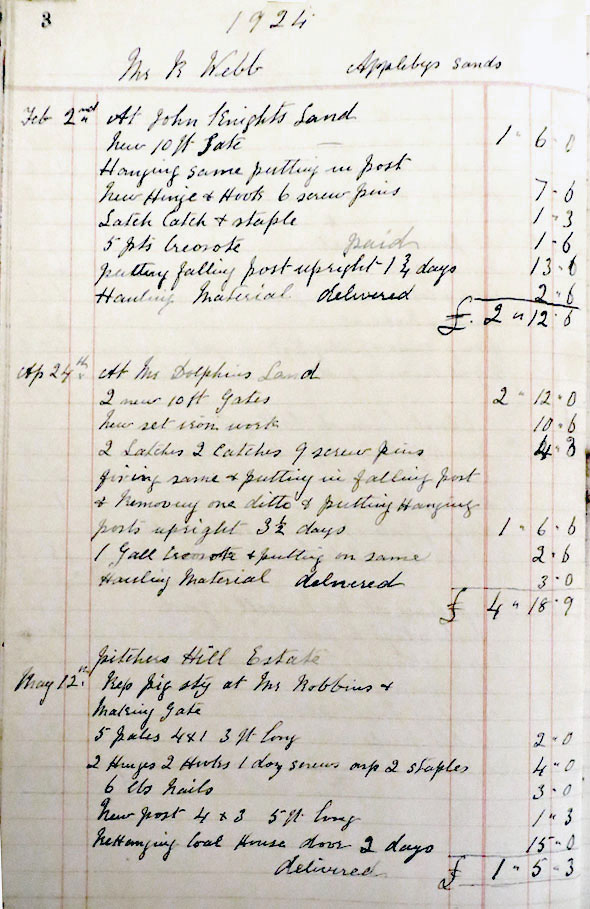 3
1924
Mr R Webb Applebys Sands
Feb 2nd At John Knights Land
New 10 ft Gate 1 " 6 - 0
Hanging same putting in post
New Hinge & Hook 6 screw pins 7 - 6
Latch Catch & staple 1 - 3
5 pts Creosote paid 1 - 6
putting falling post upright 1 3/4 days 13 - 6
Hauling Material delivered 2 - 6
£. 2 " 12 - 6
Ap 24th At Mr Dolphins Land
2 new 10 ft Gates 2 " 12 - 0
New set iron work 10 - 6
2 Latches 2 Catches 9 screw pins 4 - 3
fixing same & putting in falling post
& Removing one ditto & putting Hanging
posts upright 3 1/2 days 1 " 6 - 6
1 Gall Creosote & putting on same 2 - 6
Hauling Material delivered 3 - 0
£ 4 " 18 - 9
Pitchers Hill Estate
May 12th Rep pig sty at Mr Robbins &
Making Gate
5 pales 4 x 1 3 ft long 2 - 0
2 Hinges 2 Hooks 1 doz screws 2 staples 4 - 0
6 lbs Nails 3 - 0
New post 4 x 3 5 ft long 1 - 3
ReHanging Coal House door 2 days 15 - 0
delivered £ 1 " 5 - 3